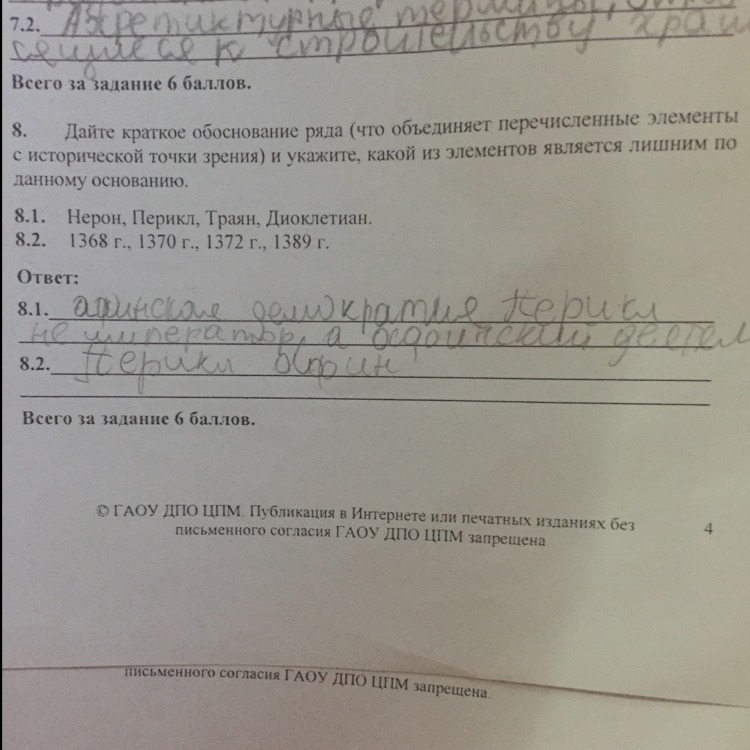 7.2. Архетиктурные термины, отно
сящиеся к строительству храм
Всего за задание 6 баллов.
8. Дайте краткое обоснование ряда (что объединяет перечисленные элементы
с исторической точки зрения) и укажите, какой из элементов является лишним по
данному основанию.
8.1. Нерон, Перикл, Траян, Диоклетиан.
8.2. 1368 г., 1370 г., 1372 г., 1389 г.
Ответ:
8.1. афинская демократия Перикл
не император, а
8.2. Перикл Афин
Всего за задание 6 баллов.
© ГАОУ ДПО ЦПМ. Публикация в Интернете или печатных изданиях без
письменного согласия ГАОУ ДПО ЦПМ запрещена.
4
письменного согласия ГАОУ ДПО ЦПМ запрещена.